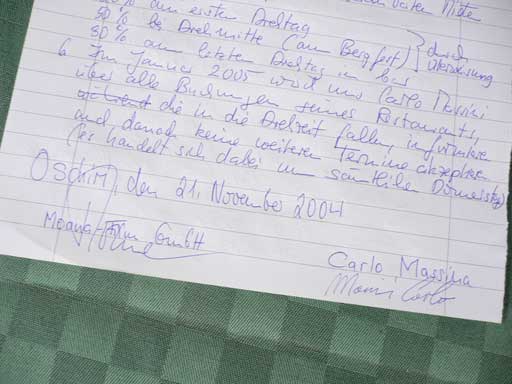 % am ersten Drehtag
30% bis Drehmitte (am Bergfest) } durch
30% am letzten Drehtag in bar } Überweisung
6. Im Januar 2005 wird uns Carlo
über alle Buchungen seines Restaurants,
die in die Drehzeit fallen, informieren
und danach keine weiteren Termine akzeptieren
(es handelt sich dabei um sämtliche
den 21. November 2004
Film GmbH
Carlo Massira
Carlo